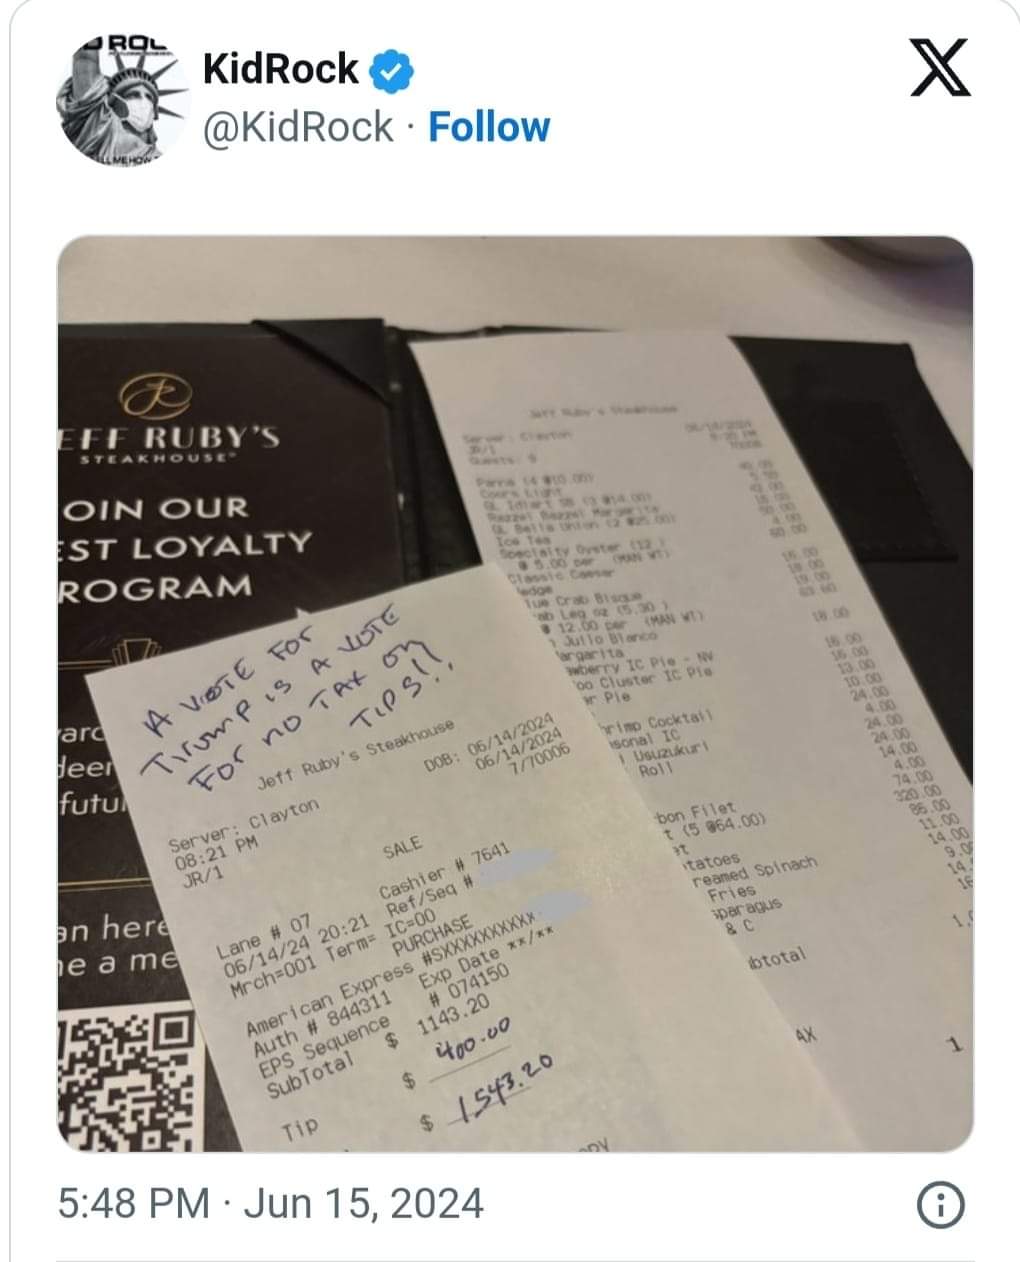 KidRock
@KidRock · Follow
EFF RUBY'S
STEAKHOUSE
OIN OUR
EST LOYALTY
ROGRAM
arc
deer
futu
an here
e a me
Jeff Ruby's Steakhouse
Server: Clayton
06/14/2024
JR/1
Guests: 9
Panna (4 @10.00)
Coors Light
Razzel Dazzel Margarita
GL Bella Union (2 @25.00)
Ice Tea
Specialty Oyster (12 )
@ 5.00 per (MAN WT)
Classic Caesar
edge
lue Crab Bisque
ab Leg oz (5.30 )
@ 12.00 per (MAN WT)
Julio Blanco
argarita
wberry IC Pie - NV
oo Cluster IC Pie
r Pie
hrimp Cocktail
sonal IC
Usuzukuri
Roll
bon Filet
t (5 @64.00)
et
tatoes
reamed Spinach
Fries
sparagus
& C
18.00
16.00
16.00
13.00
10.00
24.00
4.00
24.00
24.00
14.00
4.00
74.00
320.00
86.00
11.00
14.00
9.0
14.
16
btotal
1,
AX
1
A VOTE FOR
Trump is A VOTE
FOR NO TAX on
TIPS!!
Jeff Ruby's Steakhouse
DOB: 06/14/2024
Server: Clayton
06/14/2024
08:21 PM
7/70006
JR/1
SALE
Lane # 07
Cashier # 7641
06/14/24 20:21
Ref/Seq #
Mrch=001 Term= IC=00
PURCHASE
American Express #SXXXXXXXXXX
Auth # 844311
Exp Date **/**
EPS Sequence # 074150
SubTotal $ 1143.20
Tip $ 400.00
$ 1543.20
OPY
5:48 PM · Jun 15, 2024